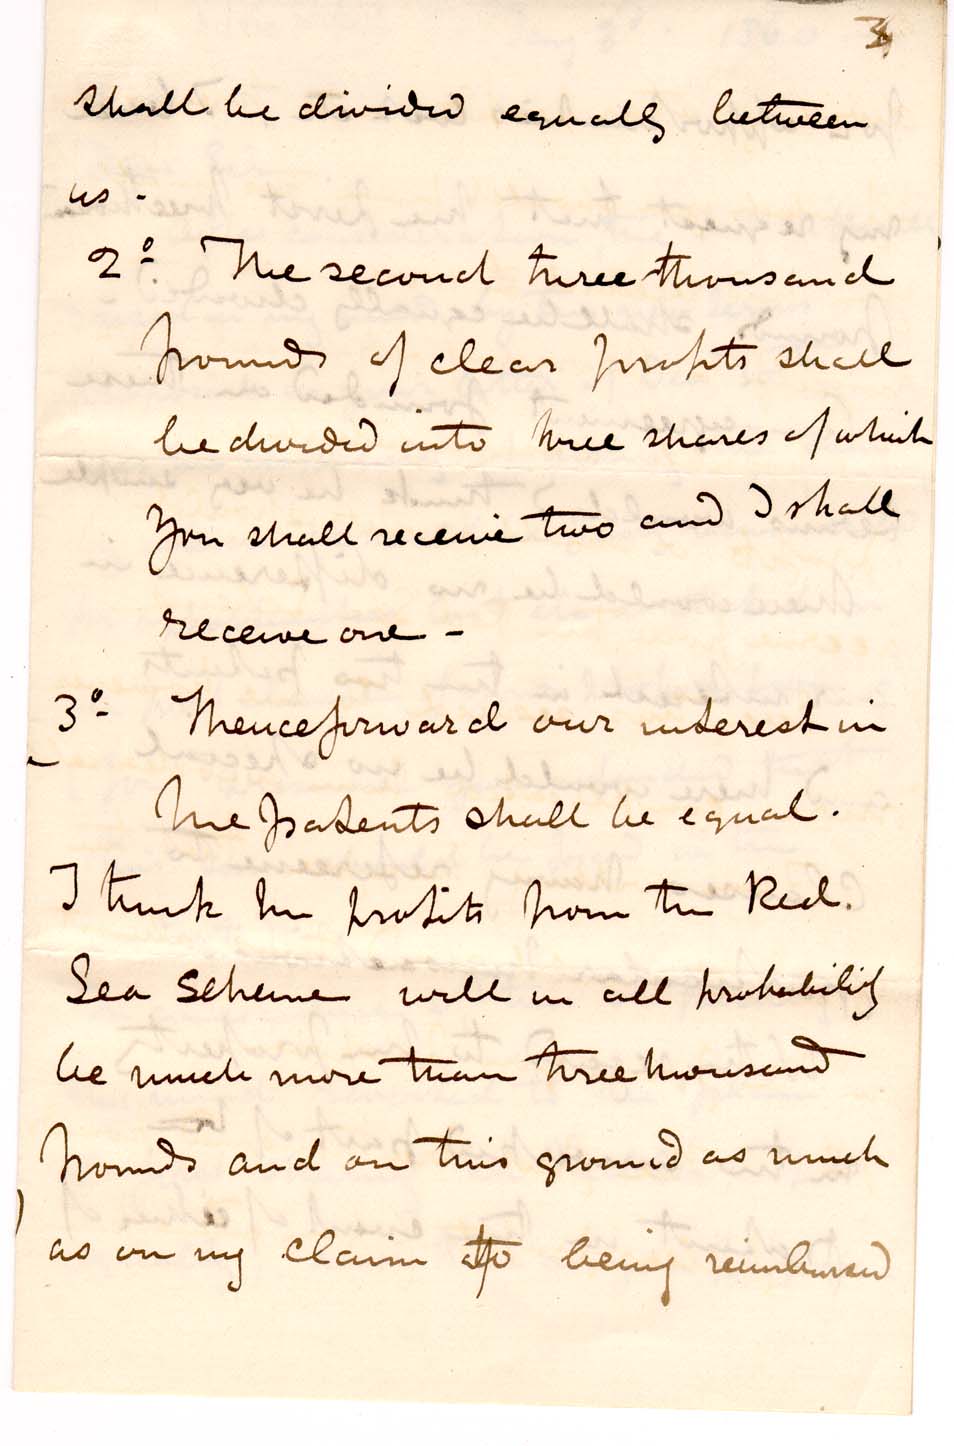 3
shall be divided equally between
us -
2º- The second three thousand
pounds of clear profits shall
be divided into three shares of which
you shall receive two and I shall
receive one -
3º- Thenceforward our interest in
the patents shall be equal.
I think the profits from the Red.
Sea Scheme will in all probability
be much more than three thousand
pounds and on this ground as much
as on my claim to being reimbursed